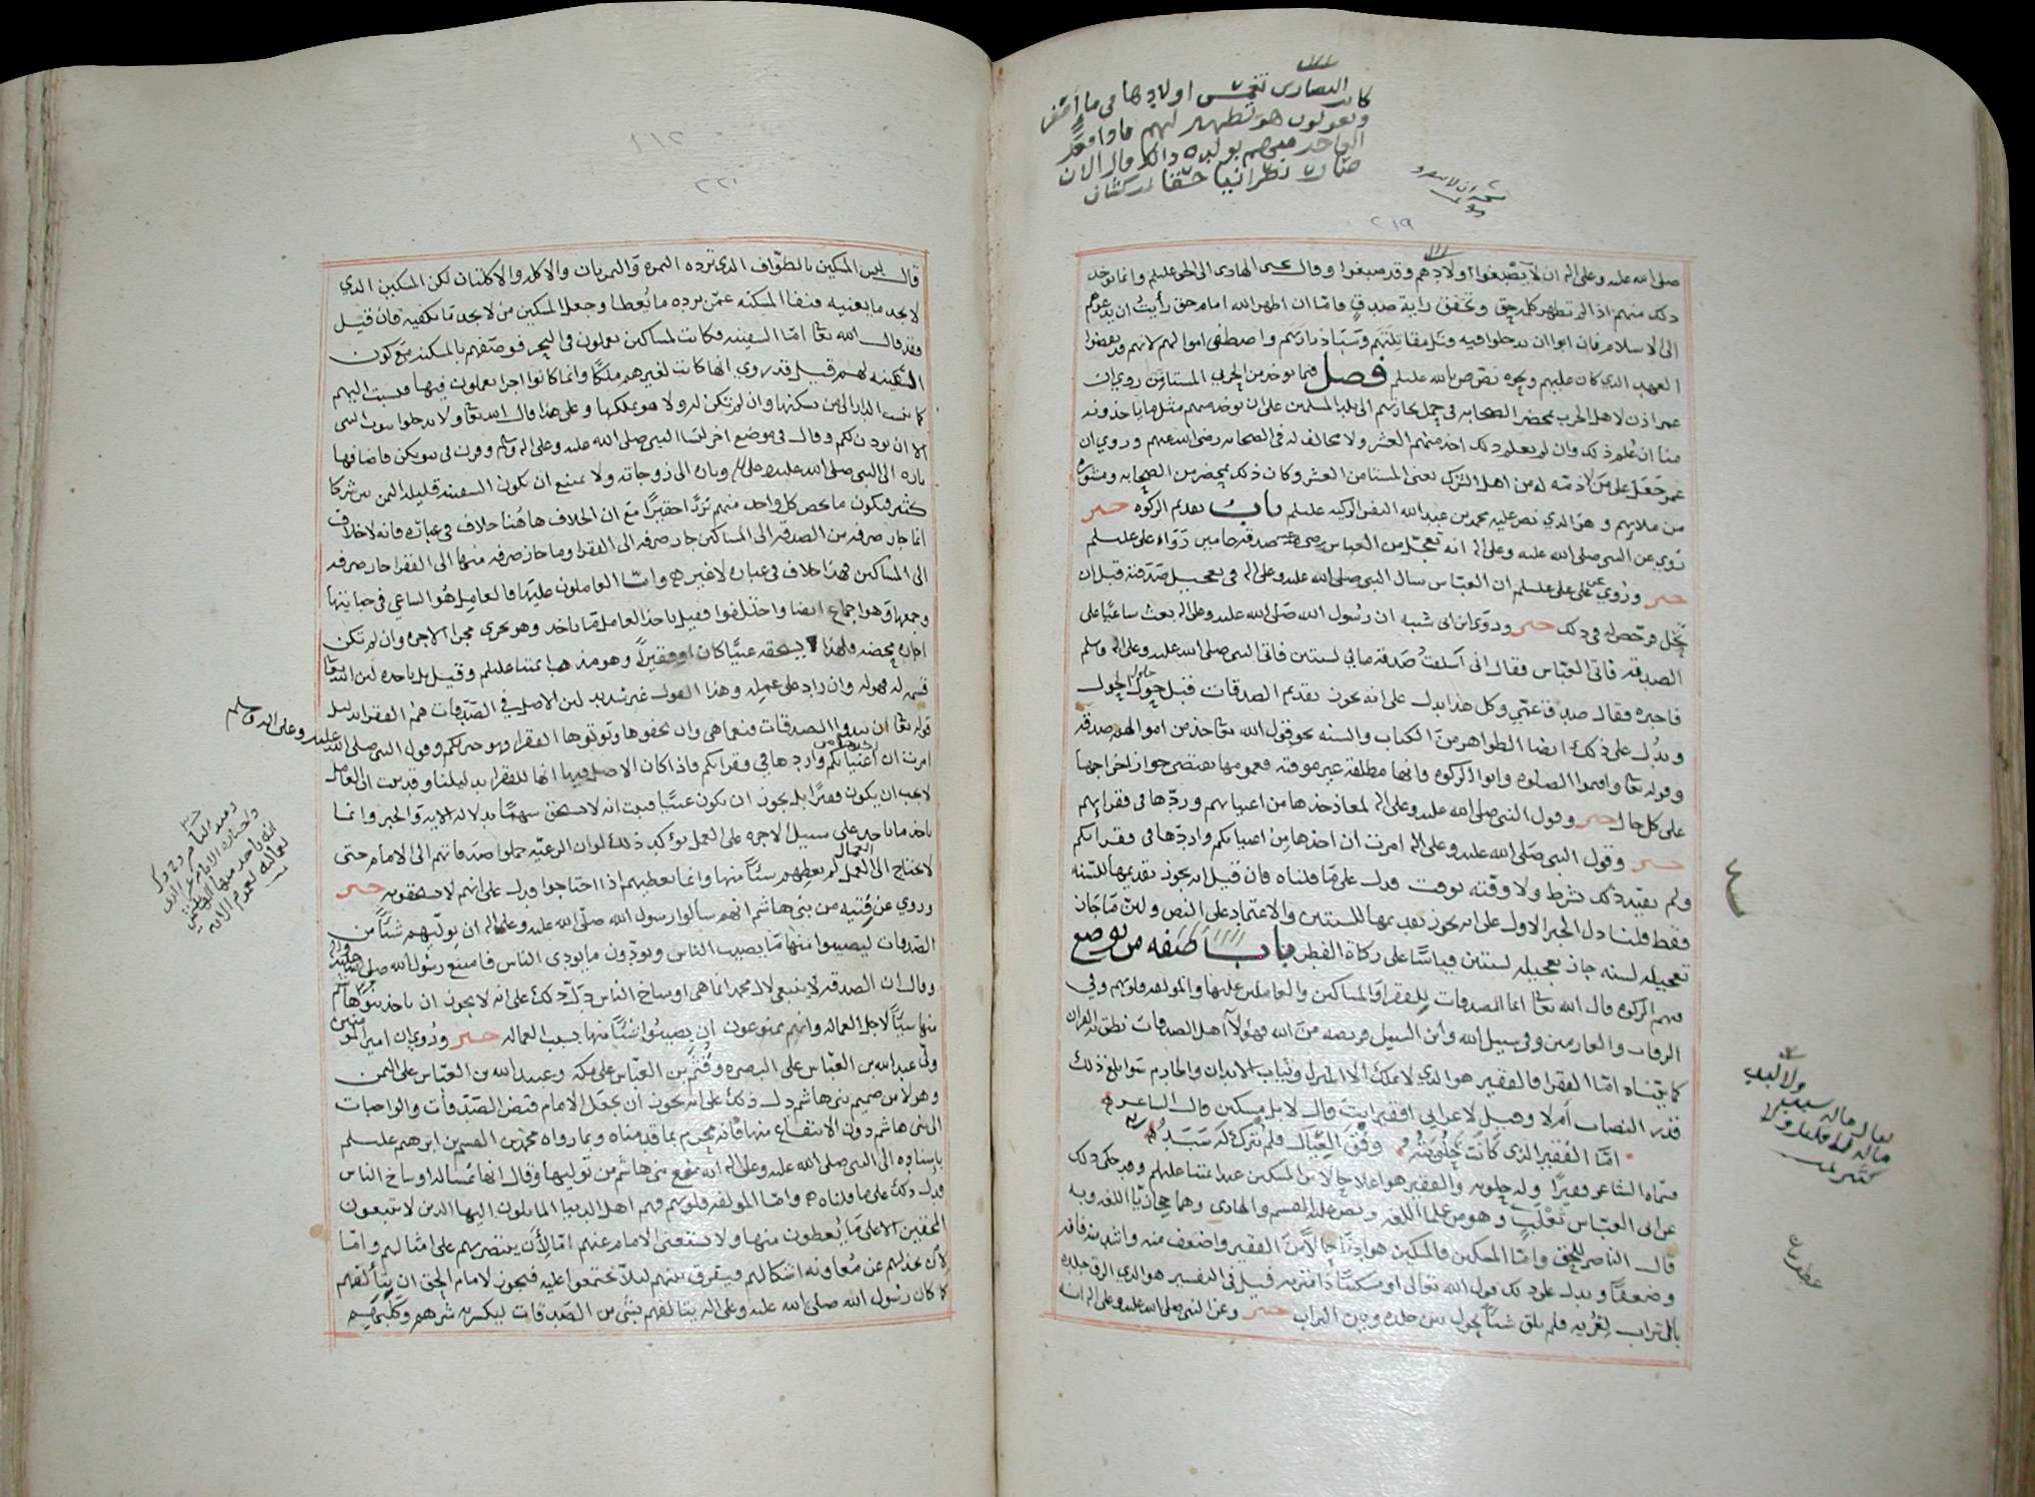 كانت النصارى تغمس اولادها في ماء اصفر
ويقولون هو تطهير لهم فاذا فعل
الواحد منهم بولده ذلك قال الان
صار نصرانيا حقا كشاف
٢١٩
صلى الله عليه وعلى اله ان لا يصبغوا اولادهم وقد صبغوا وقال يحيى الهادي الى الحق عليلم وانما يوخذ
ذلك منهم اذا لم تظهر كلمة حق وتخفق راية صدق فاما ان اظهر الله امام حق رأيت ان يدعوهم
الى الاسلام فان ابوا ان يدخلوا فيه وقتل مقاتلتهم وسبا ذراريهم واصطفى اموالهم لانهم قد نقضوا
العهد الذي كان عليهم ونحوه نص ص بالله عليلم فصل فيما يوخذ من الحربي المستامن روي ان
عمر اذن لاهل الحرب بمحضر الصحابه في حمل تجارتهم الى بلد المسلمين على ان يوخذ منهم مثل ما ياخذونه
منا ان علم ذلك وان لم يعلم ذلك اخذ منهم العشر ولا مخالف له في الصحابه رضي الله عنهم وروي ان
عمر جعل على من لا ذمه له من اهل الشرك يعني المستامن العشر وكان ذلك بمحضر من الصحابه ومشوره
من ملائهم وهو الذي نص عليه محمد بن عبد الله النفس الزكيه عليلم باب تقديم الزكوه خبر
روي عن النبي صلى الله عليه وعلى اله انه تعجل من العباس رضي عنه صدقه عامين رواه علي عليلم
خبر وروي عن علي عليلم ان العباس سال النبي صلى الله عليه وعلى اله في تعجيل صدقته قبل ان
تحل فرخص له في ذلك خبر وروى ابن ابي شيبه ان رسول الله صلى الله عليه وعلى اله بعث ساعيا على
الصدقه فاتى العباس فقال اني اسلفت صدقة مالي لسنتين فاتى النبي صلى الله عليه وعلى اله وسلم
فاخبره فقال صدق عمي وكل هذا يدل على انه يجوز تقديم الصدقات قبل حول الحول
ويدل على ذلك ايضا الظواهر من الكتاب والسنه نحو قول الله تعا خذ من اموالهم صدقه
وقوله تعا واقيموا الصلوه واتوا الزكوه فانها مطلقه غير موقته فعمومها يقتضي جواز اخراجها
على كل حال خبر وقول النبي صلى الله عليه وعلى اله لمعاذ خذها من اغنيائهم وردها في فقرائهم
خبر وقول النبي صلى الله عليه وعلى اله امرت ان اخذها من اغنيائكم واردها في فقرائكم
ولم يقيد ذلك بشرط ولا وقته بوقت فدل على ما قلناه فان قيل انه يجوز تقديمها للسنه
فقط قلنا دل الخبر الاول على انه يجوز تقديمها للسنتين والاعتماد على النص ولان ما جاز
تعجيله لسنه جاز تعجيله لسنتين قياسا على زكاة الفطر باب صفه من توضع
فيهم الزكوه قال الله تعا انما الصدقات للفقرا والمساكين والعاملين عليها والمولفه قلوبهم وفي
الرقاب والغارمين وفي سبيل الله وابن السبيل فريضه من الله فهؤلاء اهل الصدقات نطق به القران
كما بيناه اما الفقرا فالفقير هو الذي لا يملك الا المنزل وثياب الابدان والخادم سوا بلغ ذلك
قدر النصاب ام لا وقيل لاعرابي افقير انت قال لا بل مسكين قال الشاعر
اما الفقير الذي كانت حلوبته وفق العيال فلم يترك له سبد
فسماه الشاعر فقيرا وله حلوبه والفقير هو اعلا حالا من المسكين عند ائمتنا عليهم وقد حكى ذلك
عن ابي العباس ثعلب وهو من علما اللغه ونص عليه القسم والهادي وهما حجازيا اللغه وبه
قال الناصر للحق واما المسكين فالمسكين هو ادنا حالا من الفقير واضعف منه واشد منه فاقه
وضعفا ويدل على ذلك قول الله تعالى او مسكينا ذا متربه قيل في التفسير هو الذي الزق جلده
بالتراب لعريه فلم يلق شيئا يحول بين جلده وبين التراب خبر وعن النبي صلى الله عليه وعلى اله انه
٢٢٠
قال ليس المسكين بالطواف الذي ترده التمره والتمرتان والاكله والاكلتان لكن المسكين الذي
لا يجد ما يغنيه فنفا المسكنه عمن ترده ما يعطا وجعل المسكين من لا يجد ما يكفيه فان قيل
فقد قال الله تعا اما السفينه فكانت لمساكين يعملون في البحر فوصفهم بالمسكنه مع كون
السفينه لهم قيل قد روي انها كانت لغيرهم ملكا وانما كانوا اجرا يعملون فيها فنسبت اليهم
كما نسب الدار الى من يسكنها وان لم تكن له ولا هو يملكها وعلى هذا قال الله تعا ولا تدخلوا بيوت النبي
الا ان يوذن لكم وقال في موضع اخر لنسا النبي صلى الله عليه وعلى اله وسلم وقرن في بيوتكن فاضافها
تاره الى النبي صلى الله عليه وعلى اله وتاره الى زوجاته ولا يمنع ان تكون السفينه قليله الثمن بين شركا
كثير فيكون ما يخص كل واحد منهم نزرا حقيرا مع ان الخلاف هاهنا خلاف في عباره فانه لا خلاف
انما جاز صرفه من الصدقه الى المساكين جاز صرفه الى الفقرا وما جاز صرفه منها الى الفقرا جاز صرفه
الى المساكين فهذا خلاف في عباره لا غير واما العاملون عليها فالعامل هو الساعي في جبايتها
وجمعها وهو اجماع ايضا واختلفوا فقيل ياخذ العامل ما ياخذ وهو يجري مجرا الاجره وان لم تكن
اجاره محضه ولهذا يستحقه غنيا كان او فقيرا وهو مذهب ائمتنا عليلم وقيل بل ياخذه لان الله تعا
قسمه له فهو له وان زاد على عمله وهذا القول غير سديد لان الاصل في الصدقات هم الفقرا بدليل
قوله تعا ان تبدوا الصدقات فنعما هي وان تخفوها وتوتوها الفقرا فهو خير لكم وقول النبي صلى الله عليه وعلى اله وسلم
امرت ان اخذها من اغنيائكم واردها في فقرائكم فاذا كان الاصل فيها انها للفقرا بدليلنا وقد ثبت ان العامل
لا يجب ان يكون فقيرا بل يجوز ان يكون غنيا فثبت انه لا يستحق سهما بدلاله الايه والخبر وانما
ياخذ ما ياخذ على سبيل الاجره على العمل يؤكد ذلك لو ان الرعيه حملوا صدقاتهم الى الامام حتى
لا يحتاج الى العمال لم يعطهم شيئا منها وانما يعطيهم اذا احتاجوا فدل على انهم لا يستحقونه خبر
وروي عن فتيه من بني هاشم انهم سالوا رسول الله صلى الله عليه وعلى اله ان يوليهم شيئا من
الصدقات ليصيبوا منها ما يصيب الناس ويودون ما يودي الناس فامتنع رسول الله صلى الله عليه واله
وقال ان الصدقه لا تنبغي لال محمد انما هي اوساخ الناس دل ذلك على انه لا يجوز ان ياخذ بنو هاشم
منها شيئا لاجل العماله وانهم ممنوعون ان يصيبوا شيئا منها بسبب العماله خبر وروي ان امير المومنين
ولى عبد الله بن العباس على البصره وقثم بن العباس على مكه وعبيد الله بن العباس على اليمن
وهولا من صميم بني هاشم دل ذلك على انه يجوز ان يجعل الامام قبض الصدقات والواجبات
الى بني هاشم دون الانتفاع منها فانه محرم بما قدمناه وبما رواه محمد بن القسم بن ابرهيم عليلم
باسناده الى النبي صلى الله عليه وعلى اله انه منع بني هاشم من توليها وقال انها غساله اوساخ الناس
فدل ذلك على ما قلناه واما المولفه قلوبهم فهم اهل الدنيا المايلون اليها الذين لا يتبعون
المحقين الا على ما يعطون منها ولا يستغني الامام عنهم اما لان ينتصر بهم على امثالهم واما
لان يخذلهم عن معاونه اشكالهم ويفرق بينهم ليلا يجتمعوا عليه فيجوز لامام الحق ان يتألفهم
كما كان رسول الله صلى الله عليه وعلى اله يتالفهم بشي من الصدقات ليكسر به شرهم وكلبهم